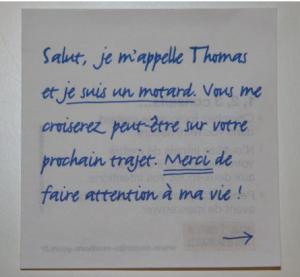 Salut, je m'appelle Thomas
et je suis un motard. Vous me
croiserez peut-être sur votre
prochain trajet. Merci de
faire attention à ma vie !